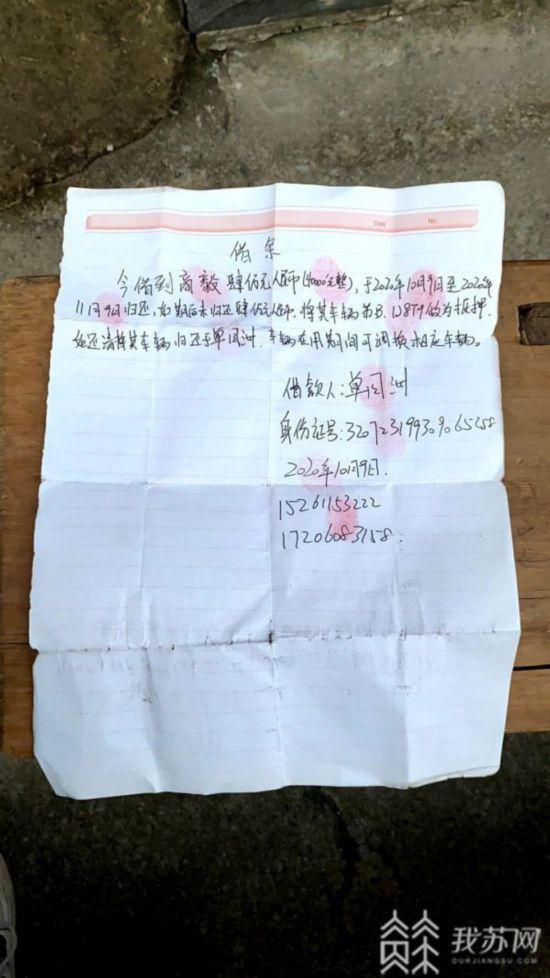 Date No.
借条
今借到高毅肆佰元人民币(4000元整)，于2020年10月9日至2020年
11月9日归还，如期后未归还肆佰元人民币，将其车辆 做为抵押.
还清将其车辆归还于单闯洲.车辆在用期间可调换相应车辆。
借款人:单闯洲
身份证号:320723199309065258
2020年10月9日.
15261153222
17206083158.
我苏网
OURJIANGSU.COM